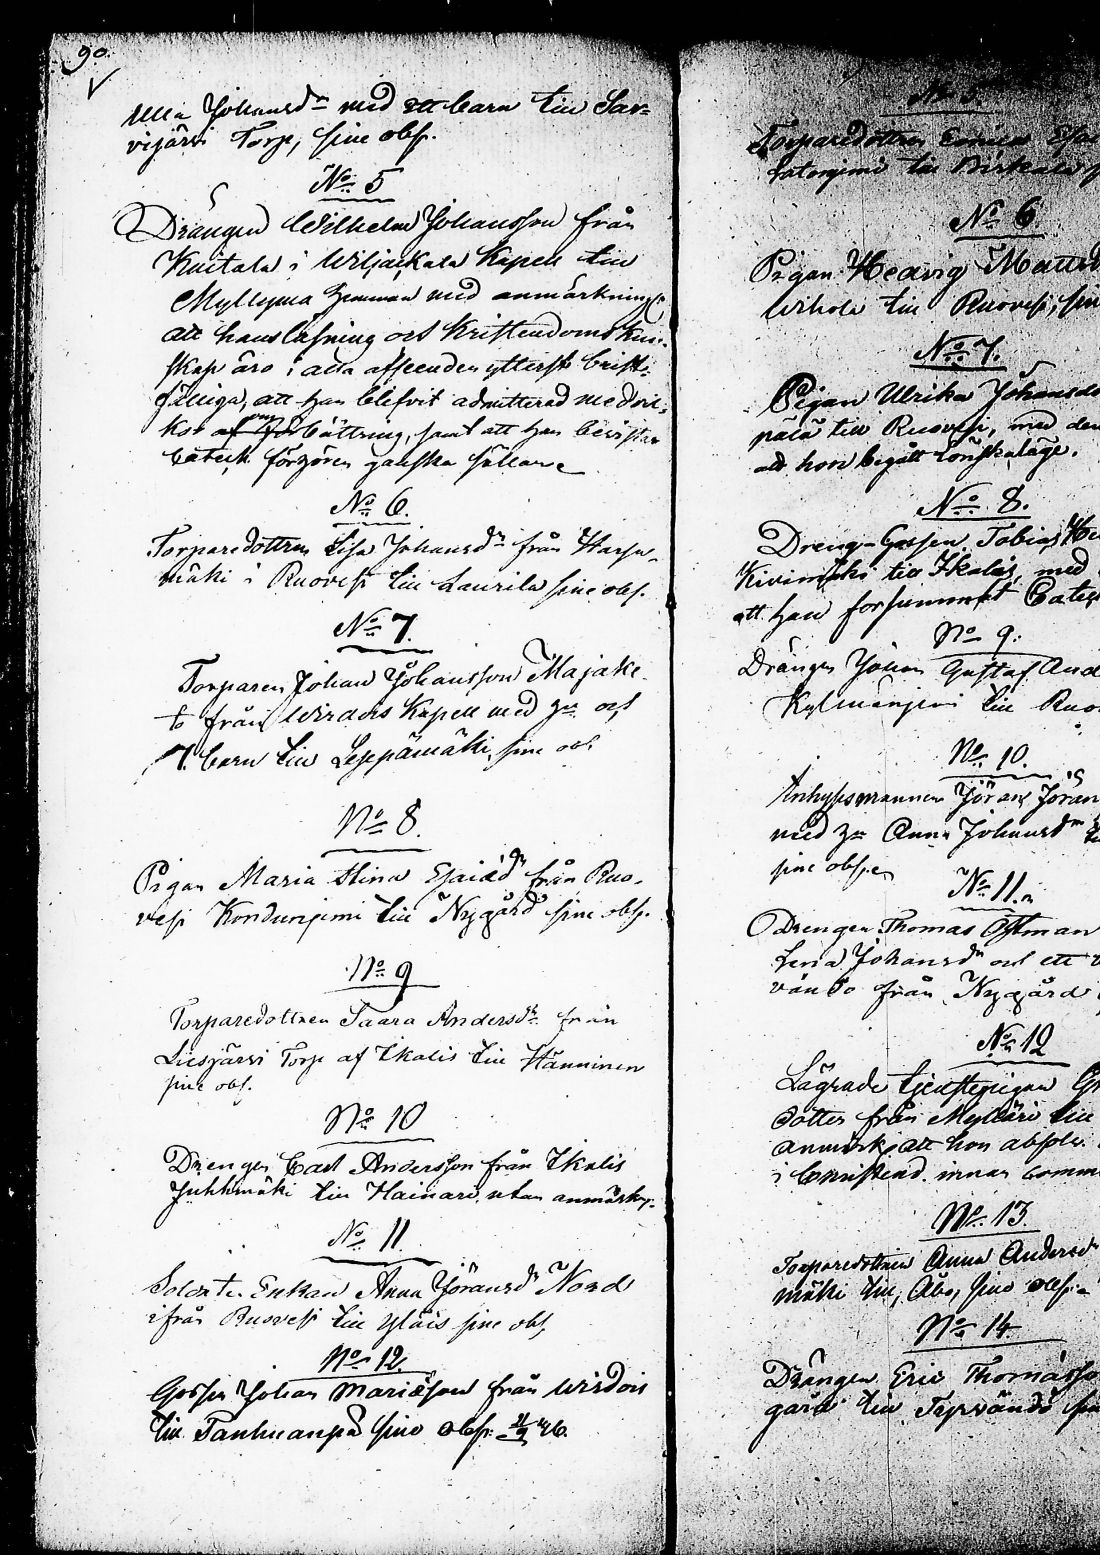 90.
Ulla Johansdr med ett barn till Sar-
vijärvi Torp, sine obs.
No 5
Drängen Wilhelm Johansson från
Kuitala i Wiljakkala Kapell till
Myllymaa hemman med anmärkning,
att hans läsning och Kristendoms kun-
skap äro i alla afseenden ytterst brist-
fälliga, att han blifvit admitterad med vil-
kor bättring, samt att han bevistar
Catech. förhören ganska sällan
No 6.
Torparedottren Lisa Johansdr från Harju-
mäki i Ruovesi till Laurila sine obs.
No 7.
Torparen Johan Johansson Majake-
to från Wirdois Kapell med hu och
7. barn till Leppämäki, sine obs
No 8.
Pigan Maria Stina Esaiædr från Ruo-
vesi Kondunjemi till Nygård sine obs.
No 9
Torparedottren Saara Andersdr från
Liesjärvi Torp af Ikalis till Hänninen
sine obs.
No 10
Drengen Carl Andersson från Ikalis
Juhhmäki till Hainari utan anmärkn.
No 11
Soldate Enkan Anna Jöransdr Nord
ifrån Ruovesi till Yläis sine obs,
No 12.
Gossen Johan Mariæson från Wirdois
till Tanhuanpä sine obs. 46.
No 5.
Torparedottren Eerica Esai
till Birkala
No 6
Pigan Hedvig Mattsd
till Ruovesi, sin
No 7.
Pigan Ulrika Johansdo
pälä till Ruovesi, med den
att hon begått Lönskaläge.
No 8.
Dreng-Gossen Tobias He
Kivimäki till Ikalis, med
att han försummat Catec
No 9.
Drängen Johan Gustaf And
Kylmänjemi till Ruo
No 10.
Inhysesmannen Jöran Jöran
med hu Anna Johansdr ti
sine obs.
No 11.
Drengen Thomas Östman
Lena Johansdr och ett
från Nygård
No 12
Lägrade tjenstepigan
dotter från Myllari till
anmärk. att hon absolv.
i Christend. innan comm
No 13.
Torparedottren Anna Andersd
mäki till, Åbo, sine obs.
No 14.
Drängen Eric Thomasso
gård till Tyrvändö sin